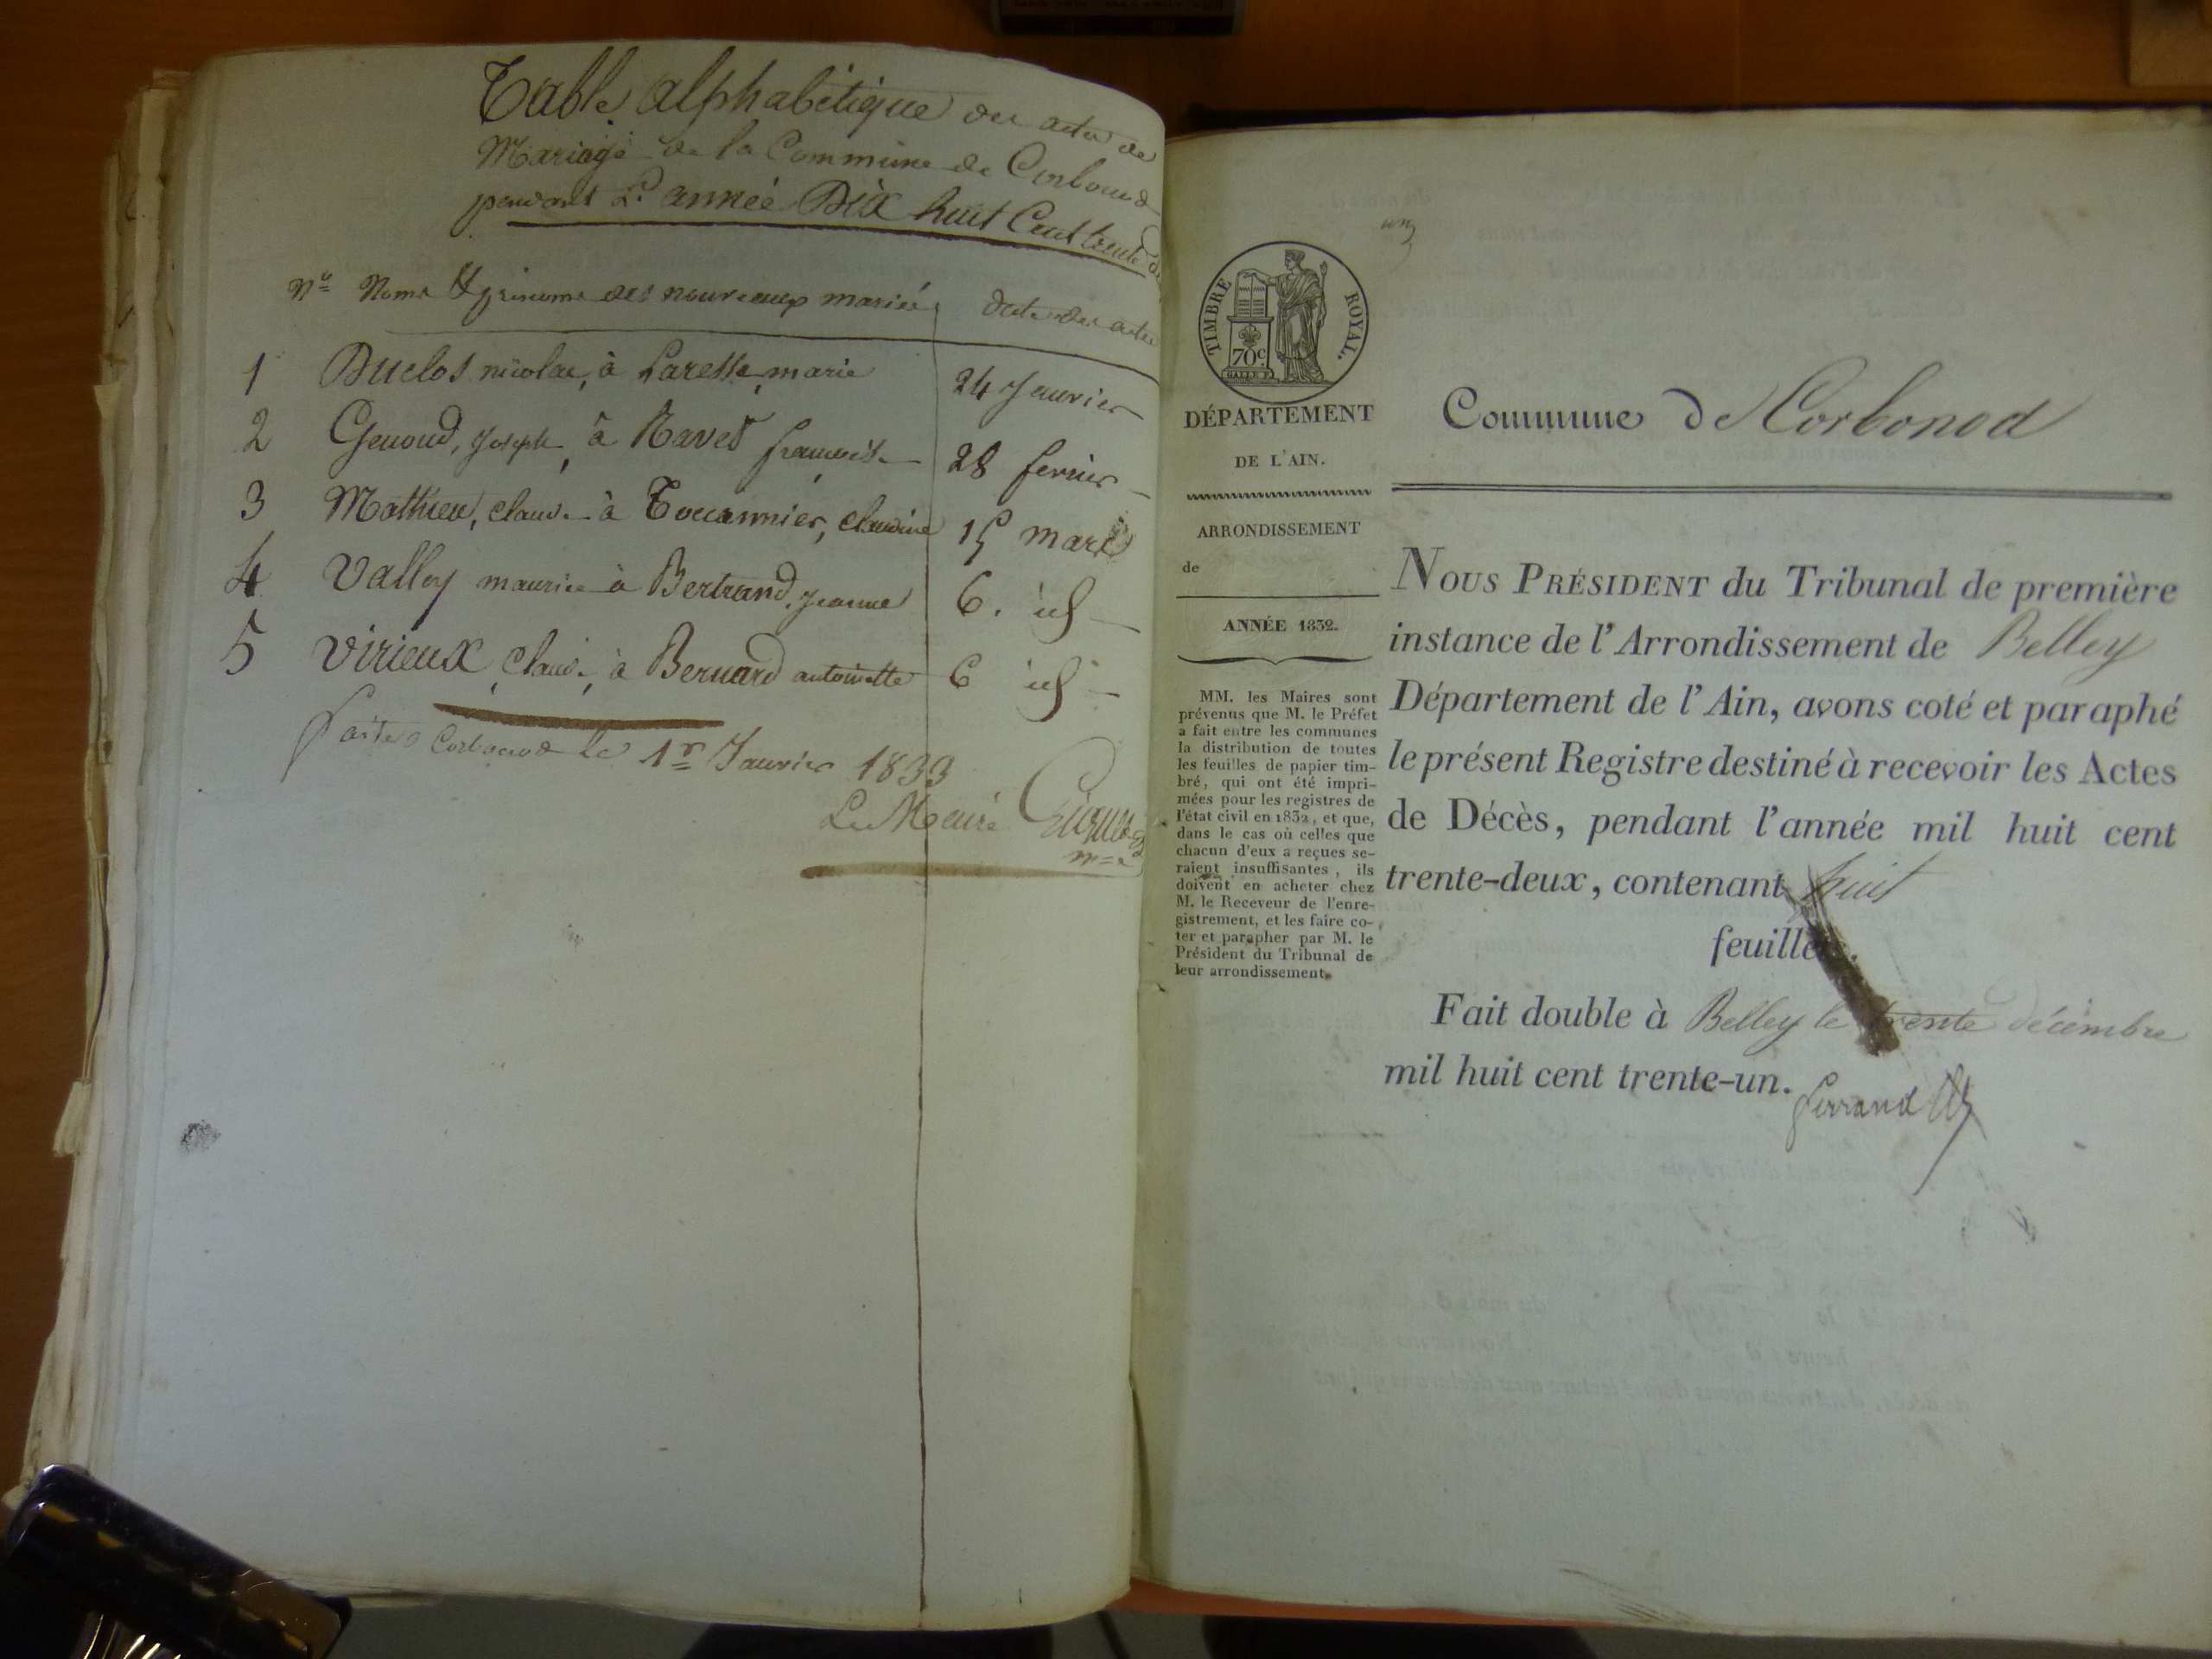 Table alphabétique des actes de
Mariage de la Commune de Corbonod
pendant L'année Dix huit Cent trente
N° Noms & prénoms des nouveaux mariés dates des actes
1 Duclos nicolas, à Laresse, marie 24 Janvier
2 Genoud, Joseph, à Ravet françoise 28 fevrier
3 Mathieu, claude à Toucannier, claudine 15 mars
4 Valley maurice à Bertrand, Jeanne 6. id
5 Virieux, Claude, à Bernard antoinette 6 id
faite à Corbonod le 1er Janvier 1833
Le Maire
TIMBRE ROYAL.
70c
GALLE F.
DÉPARTEMENT
DE L'AIN.
ARRONDISSEMENT
de
ANNÉE 1832.
MM. les Maires sont
prévenus que M. le Préfet
a fait entre les communes
la distribution de toutes
les feuilles de papier tim-
bré, qui ont été impri-
mées pour les registres de
l'état civil en 1832, et que,
dans le cas où celles que
chacun d'eux a reçues se-
raient insuffisantes, ils
doivent en acheter chez
M. le Receveur de l'enre-
gistrement, et les faire co-
ter et parapher par M. le
Président du Tribunal de
leur arrondissement.
un
Commune de Corbonod
NOUS PRÉSIDENT du Tribunal de première
instance de l'Arrondissement de Belley
Département de l'Ain, avons coté et paraphé
le présent Registre destiné à recevoir les Actes
de Décès, pendant l'année mil huit cent
trente-deux, contenant huit
feuillets.
Fait double à Belley le trente décembre
mil huit cent trente-un.
ferrand